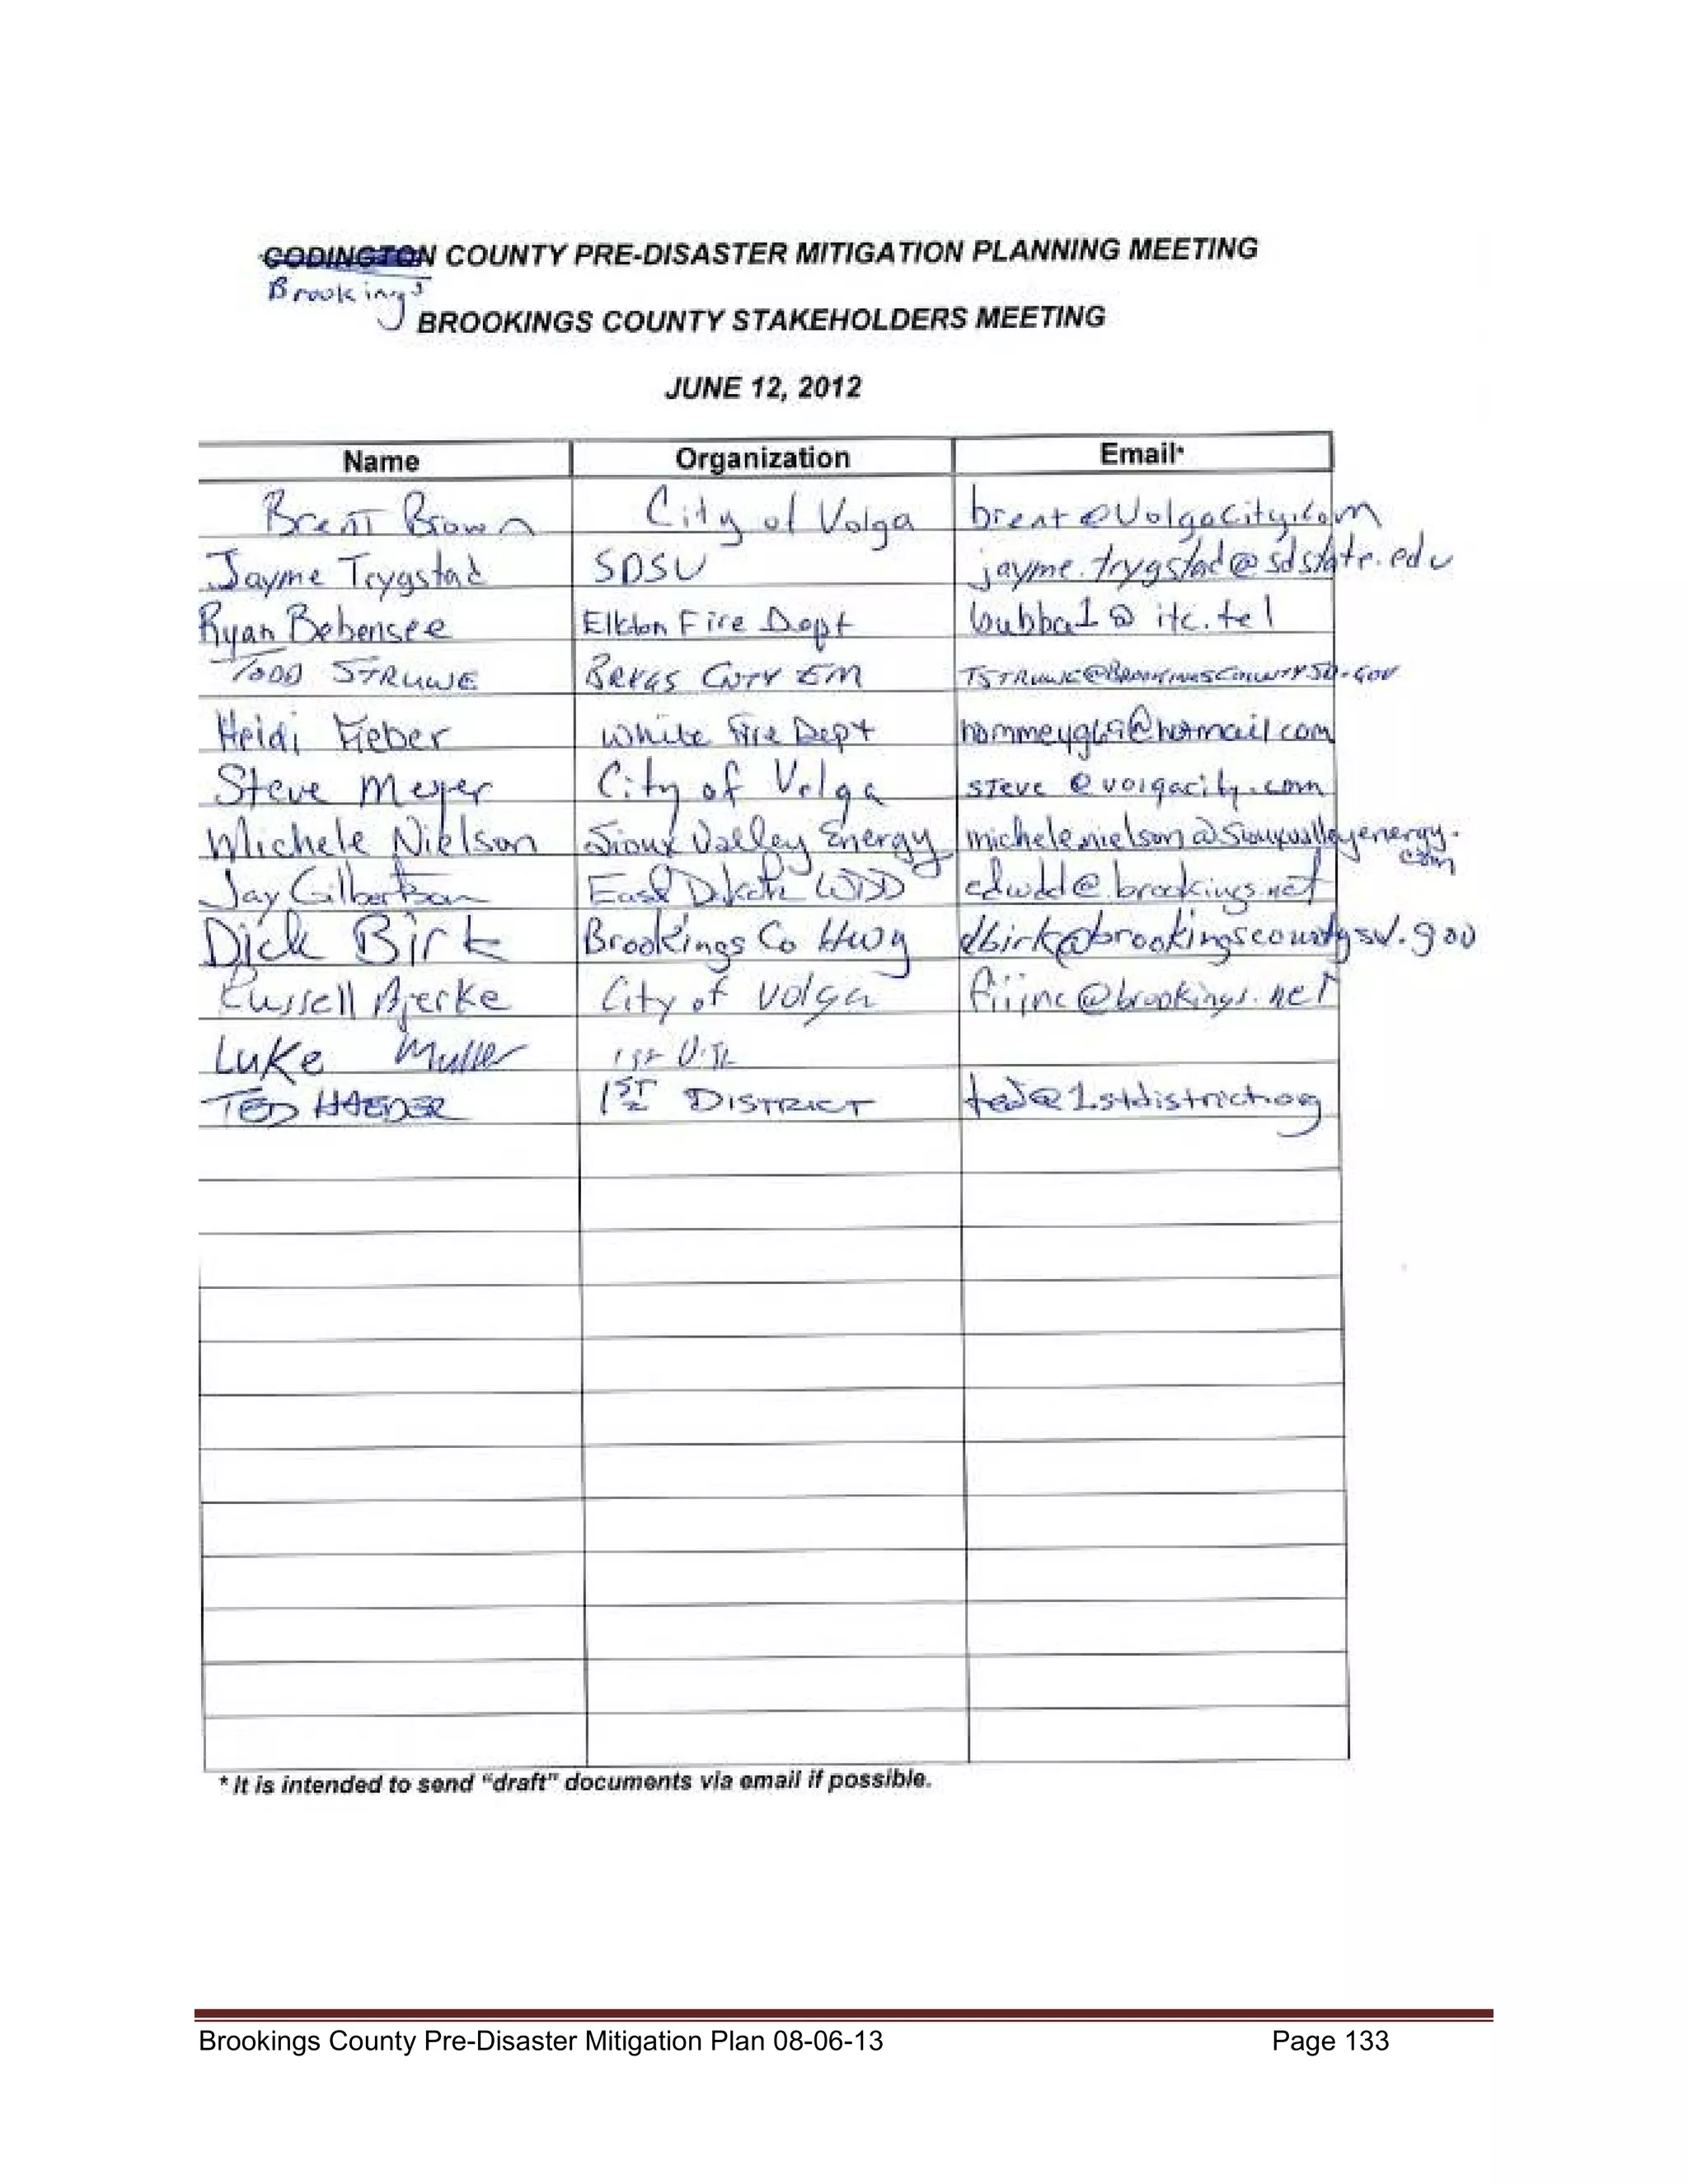 CODINGTON COUNTY PRE-DISASTER MITIGATION PLANNING MEETING
Brookings
BROOKINGS COUNTY STAKEHOLDERS MEETING
JUNE 12, 2012
Name Organization Email*
Brent Brown City of Volga brent@Volgacity.com
Jayme Trygstad SDSU jayme.trygstad@sdstate.edu
Ryan Bebensee Elkton Fire Dept bubba1@itc.tel
TODD STRUWE BRKGS CNTY EM TSTRUWE@BROOKINGSCOUNTYSD.GOV
Heidi White Fire Dept
Steve Meyer City of Volga steve@volgacity.com
Michele Nielson Sioux Valley Energy michele.nielson@siouxvalleyenergy.
com
Jay Gilbertson East Dakota WDD edwdd@brookings.net
Dick Birk Brookings Co Hwy dbirk@brookingscountysd.gov
Russell Bjerke City of Volga
Luke Muller 1st
TED HAEDER 1ST DISTRICT ted@1stdistrict.org
* It is intended to send "draft" documents via email if possible.
Brookings County Pre-Disaster Mitigation Plan 08-06-13 Page 133